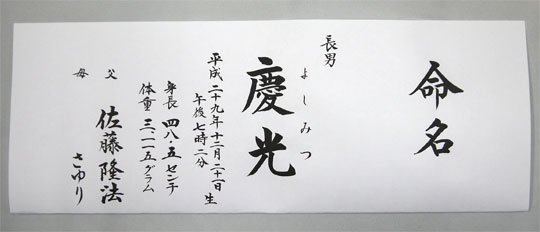 命名
長男
よしみつ
慶光
平成二十九年十二月二十一日 生
午後七時二分
身長 四八・五センチ
体重 三、一一五グラム
父 佐藤隆法
母 さゆり